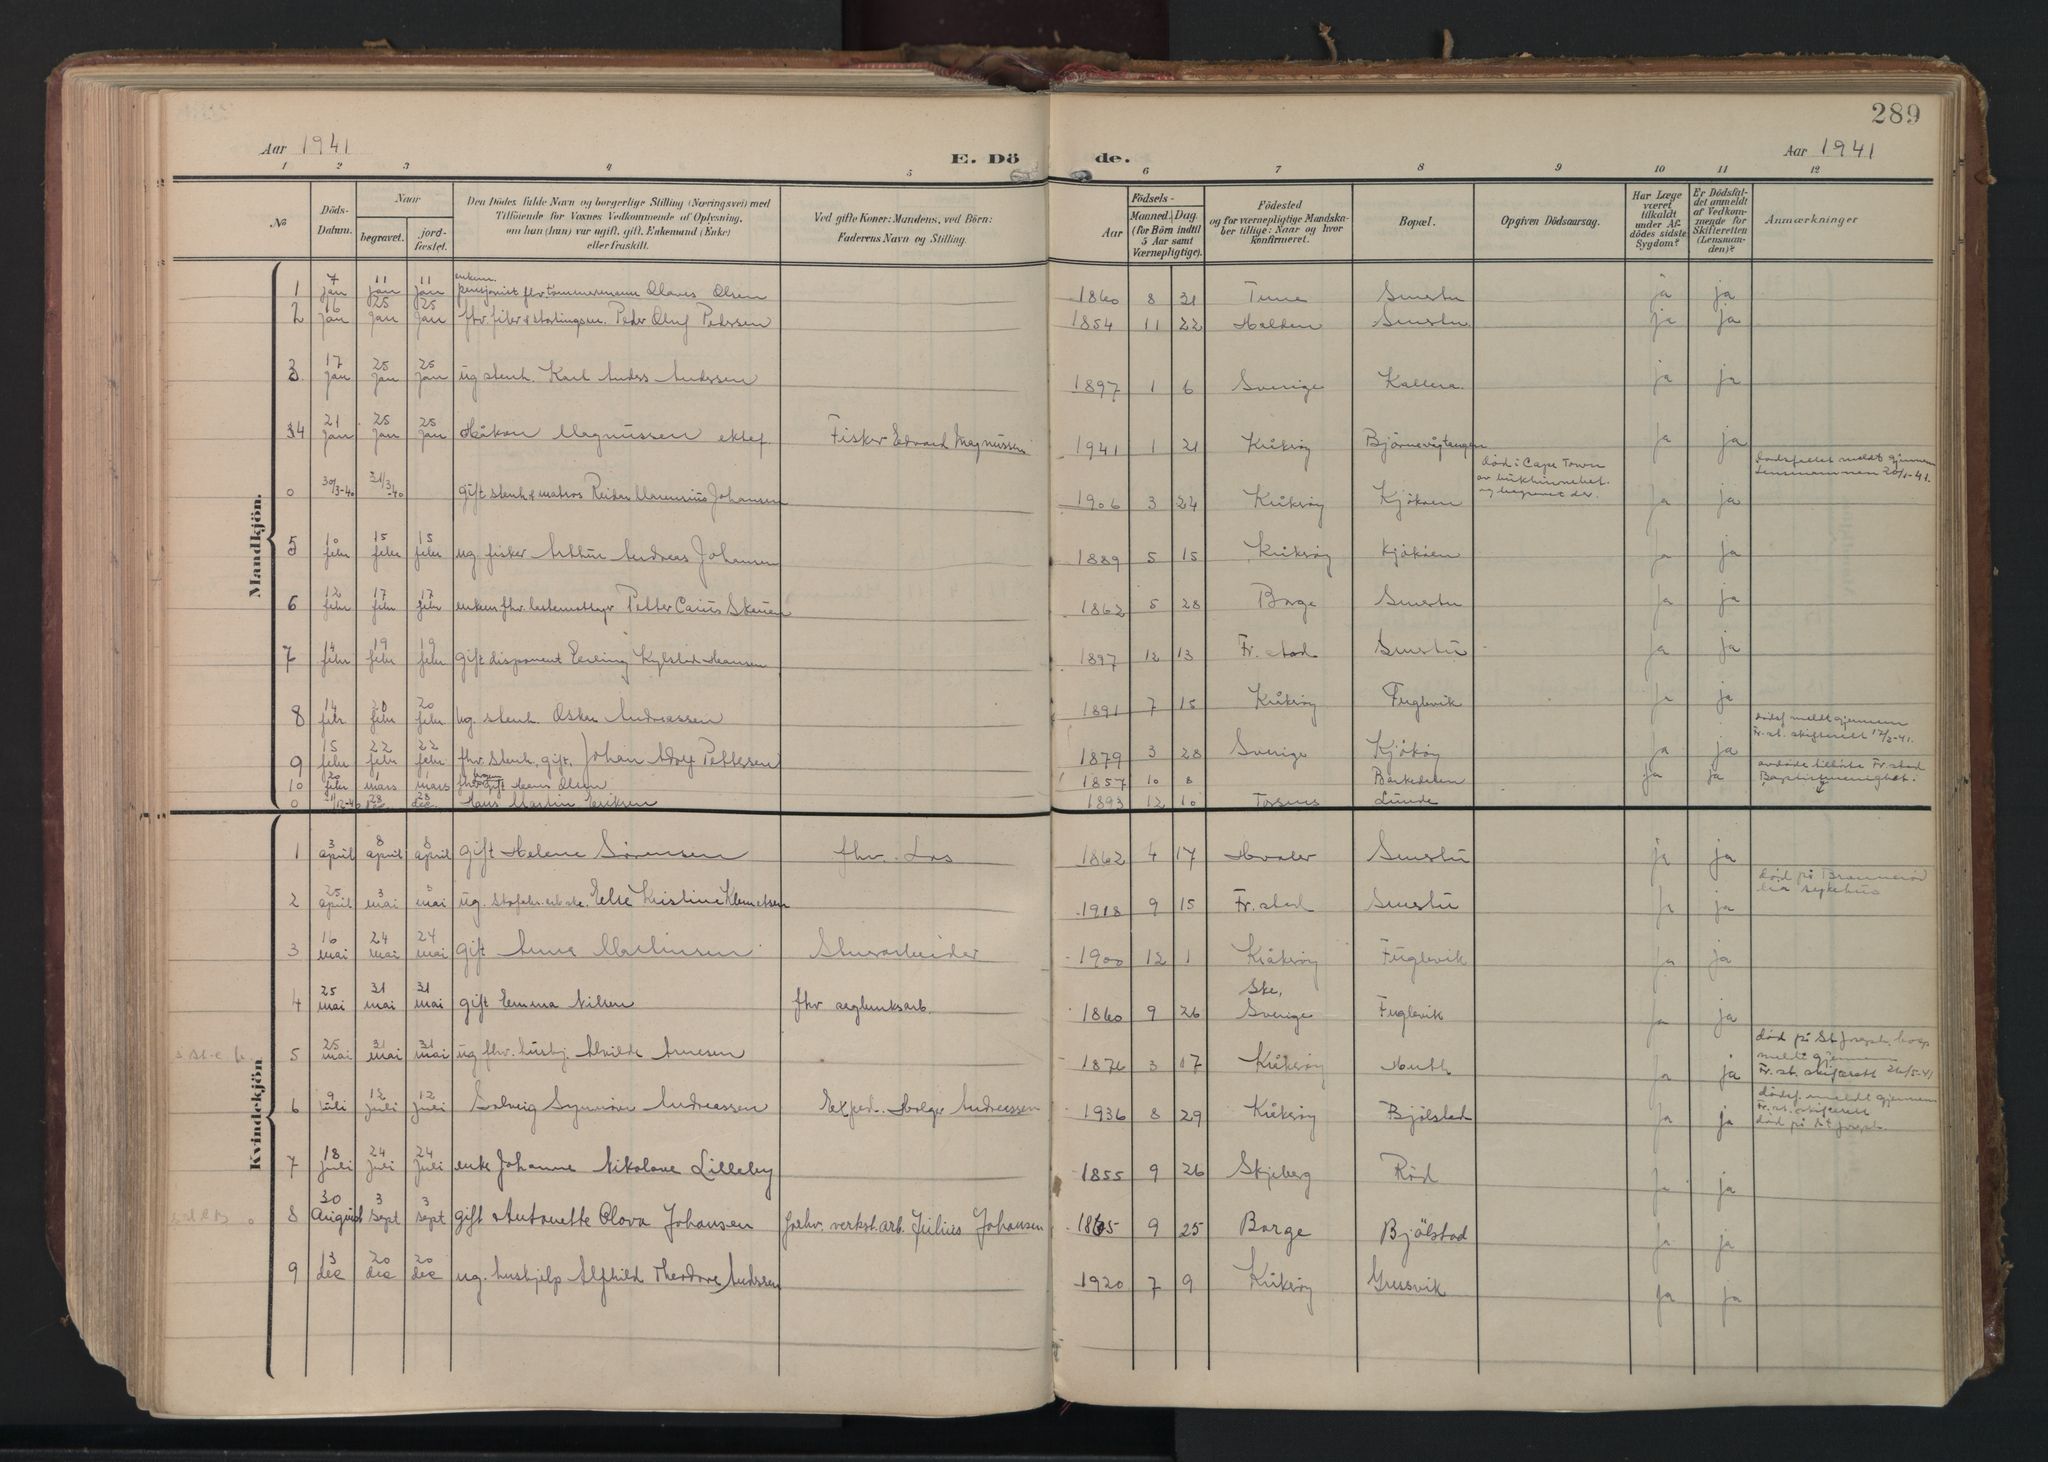 289
Aar 1941 E. Dö de. Aar 1941
1 2 3 4 5 6 7 8 9 10 11 12
No Döds-Datum. Naar begravet. jord-fæstet. Den Dödes fulde Navn og borgerlige Stilling (Næringsvei) med Tilföiende for Voxnes Vedkommende af Oplysning, om han (hun) var ugift, gift, Enkemand (Enke) eller fraskilt. Ved gifte Koner: Mandens, ved Börn: Faderens Navn og Stilling. Födsels- Aar Maaned. Dag. (for Börn indtil 5 Aar samt Værnepligtige). Födested og for værnepligtige Mandskaber tillige: Naar og hvor konfirmeret. Bopæl. Opgiven Dödsaarsag. Har Læge været tilkaldt under Afdödes sidste Sygdom? Er Dödsfaldet anmeldt af Vedkommende for Skifteretten (Lensmanden)? Anmærkninger
Mandkjön.
1 7 jan 11 jan 11 jan enkem. pensjonist fhv tømmermann Olaves Olsen 1860 8 31 Tune Smertu ja ja
2 16 jan 25 jan 25 jan fhv. Peder Oluf Pedersen 1854 11 22 Halden Smertu ja ja
3 17 jan 25 jan 25 jan ug stenh. Karl Anders Andersen 1897 1 6 Sverige Kallera ja ja
34 21 jan 25 jan 25 jan Håkon Magnussen ektef. Fisker Edvard Magnussen 1941 1 21 Kråkrøy Bjørnevågtangen ja ja Dødsfallet meldt gjennem Lensmannen 20/1-41.
0 30/3-40 31/3-40 gift stenh & matros Reidar Marenius Johansen 1906 3 24 Kråkrøy Kjøkøen død i Cape Town av bukhinnebet. og begravet der. ja ja
5 10 febr 15 febr 15 febr ug. fisker Arthur Andreas Johansen 1889 5 15 Kråkrøy Kjøkøen ja ja
6 12 febr 17 febr 17 febr enkem fhv. Petter Carius 1862 5 28 Borge Smertu ja ja
7 14 febr 19 febr 19 febr gift disponent Erling Kylstad Hansen 1897 12 13 Fr. stad Smertu ja ja
8 14 febr 20 febr 20 febr ug. stenh. Oskar Andreassen 1891 7 15 Kråkrøy Fuglevik ja ja
9 15 febr 22 febr 22 febr fhv. stenh. gift. Johan Adolf Pettersen 1879 3 28 Sverige Kjøkøy ja ja dødsf. meldt gjennem Fr. st. skifterett 17/2-41.
10 20 febr 1 mars 1 mars fhv. gift Hans Olsen 1857 10 8 Barkedalen ja ja avdøde tilhørte Fr. stad Baptistmenighet.
0 28 des 28 des Hans Martin Eriksen 1893 12 10 Torsnes Lunde
Kvindekjön
1 3 april 8 april 8 april gift Helene Sørensen fhv. Los 1862 4 17 Hvaler Smertu ja ja
2 25 april 3 mai 3 mai ug. Else Kristine Klemetsen 1918 9 15 Fr. stad Smertu ja ja død på sykehus
3 16 mai 24 mai 24 mai gift Anna Martinsen Stuearbeider 1900 12 1 Kråkrøy Fuglevik ja ja
4 25 mai 31 mai 31 mai gift Emma Nilsen fhv seglmksarb. 1860 9 26 Ske, Sverige Fuglevik ja ja
5 25 mai 31 mai 31 mai ug fhv. hushj. Alvilde Arnesen 1876 3 07 Kråkrøy Huth ja ja død på St Josephs hosp meldt gjennem Fr. st. skifterett 26/5-41
6 9 juli 12 juli 12 juli Solveig Synnøve Andreassen Exped. Holger Andreassen 1936 8 29 Kråkrøy Bjølstad ja ja dødsf. meldt gjennem Fr. st. skifterett død på St Joseph
7 18 juli 24 juli 24 juli enke Johanne Nikolane Lilleby 1855 9 26 Skjeberg Rød ja ja
8 30 August 3 sept 3 sept gift Antonette Olova Johansen forhv. verkst. arb. Julius Johansen 1865 9 25 Borge Bjølstad ja ja
9 3 dec 20 dec 20 dec ug. hushjelp Alfhild Theodore Andersen 1920 7 9 Kråkrøy Gressvik ja ja